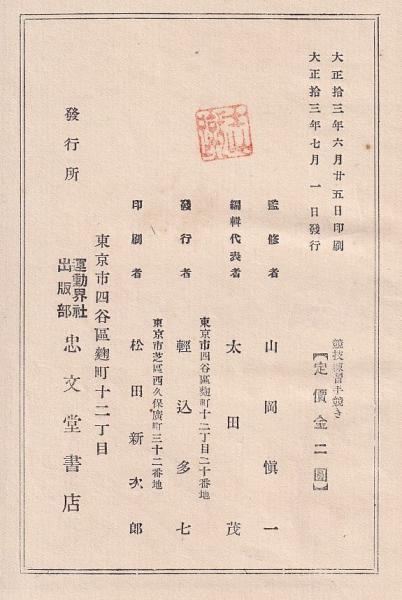 大正拾三年六月廿五日印刷
大正拾三年七月一日發行
競技練習手競き
【定價金二圓】
監修者 山岡愼一
編輯代表者 太田茂
東京市四谷區麴町十二丁目二十番地
發行者 輕込多七
東京市芝區西久保廣町三十二番地
印刷者 松田新次郎
東京市四谷區麴町十二丁目
發行所 運動界社出版部 忠文堂書店